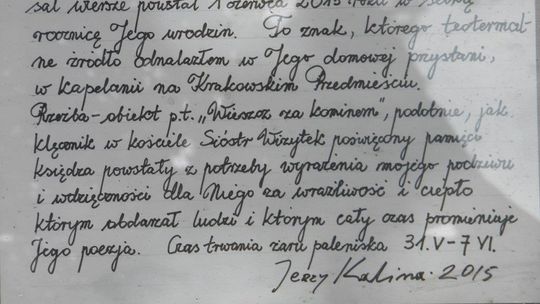 sał wiersze powstał 1 czerwca 2015 roku w setną
rocznicę Jego urodzin. To znak, którego teotermal-
ne źródło odnalazłem w Jego domowej przystani,
w kapelanii na Krakowskim Przedmieściu.
Rzeźba-obiekt p.t. „Wieszcz za kominem", podobnie, jak
klęcznik w kościele Sióstr Wizytek poświęcony pamięci
księdza powstały z potrzeby wyrażenia mojego podziwu
i wdzięczności dla Niego za wrażliwość i ciepło
którym obdarzał ludzi i którym cały czas promieniuje
Jego poezja. Czas trwania żaru paleniska 31.V-7 VI.
Jerzy Kalina. 2015